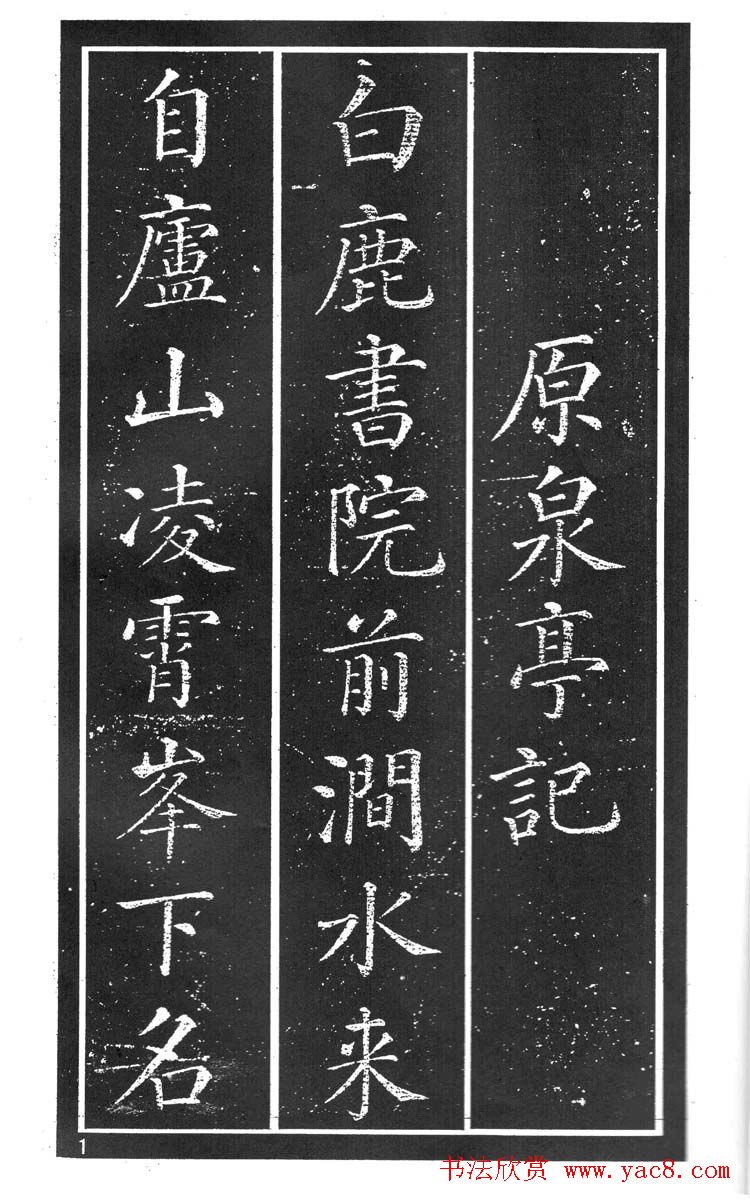 原泉亭記
白鹿書院前澗水来
自廬山凌霄峯下名
1
书法欣赏 www.yac8.com